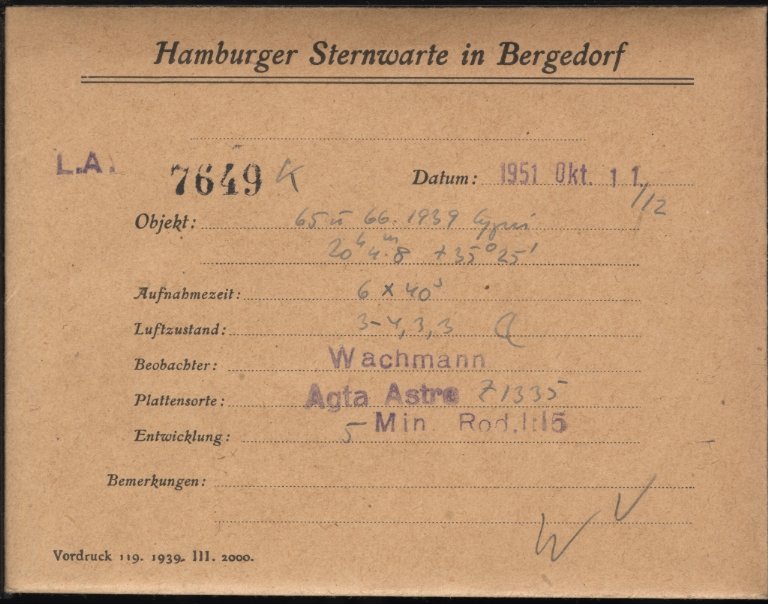 Hamburger Sternwarte in Bergedorf
L.A. 7649 K Datum: 1951 Okt. 11./12
Objekt: 65 u 66. 1939 Cygni
20h 4m.8 +35°25'
Aufnahmezeit: 6 x 40s
Luftzustand: 3-4, 3, 3
Beobachter: Wachmann
Plattensorte: Agfa Astro Z1335
Entwicklung: 5 Min. Rod. 1:15
Bemerkungen:
Vordruck 119. 1939. III. 2000.